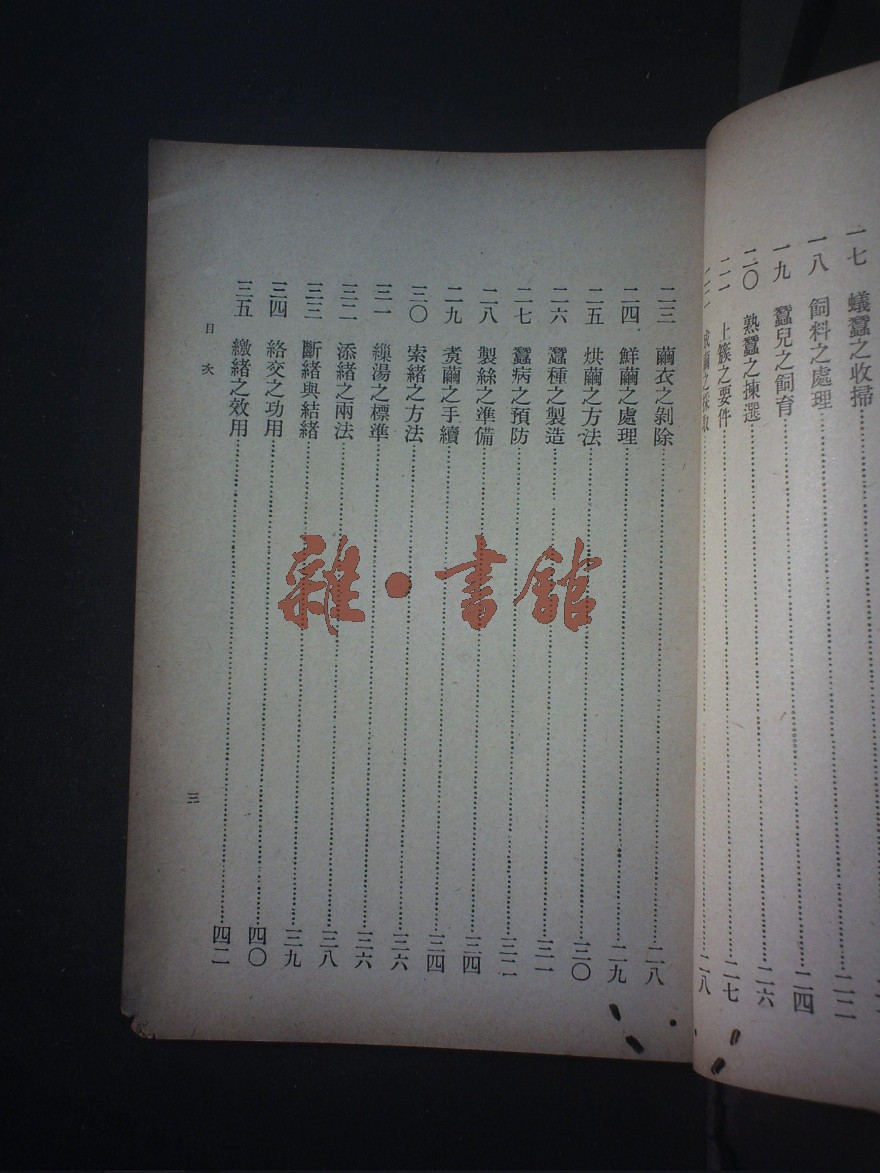 一七 蟻蠶之收掃
一八 飼料之處理 二四
一九 蠶兒之飼育
二〇 熟蠶之揀選 二六
二一 上簇之要件 二七
二八
二三 繭衣之剝除 二八
二四 鮮繭之處理 二九
二五 烘繭之方法 三〇
二六 蠶種之製造 三一
二七 蠶病之預防 三二
二八 製絲之準備 三四
二九 煑繭之手續 三四
三〇 索緒之方法 三六
三一 繅湯之標準 三六
三二 添緒之兩法 三八
三三 斷緒與結緒 三九
三四 絡交之功用 四〇
三五 繳緒之效用 四二
目次
三
雜·書館